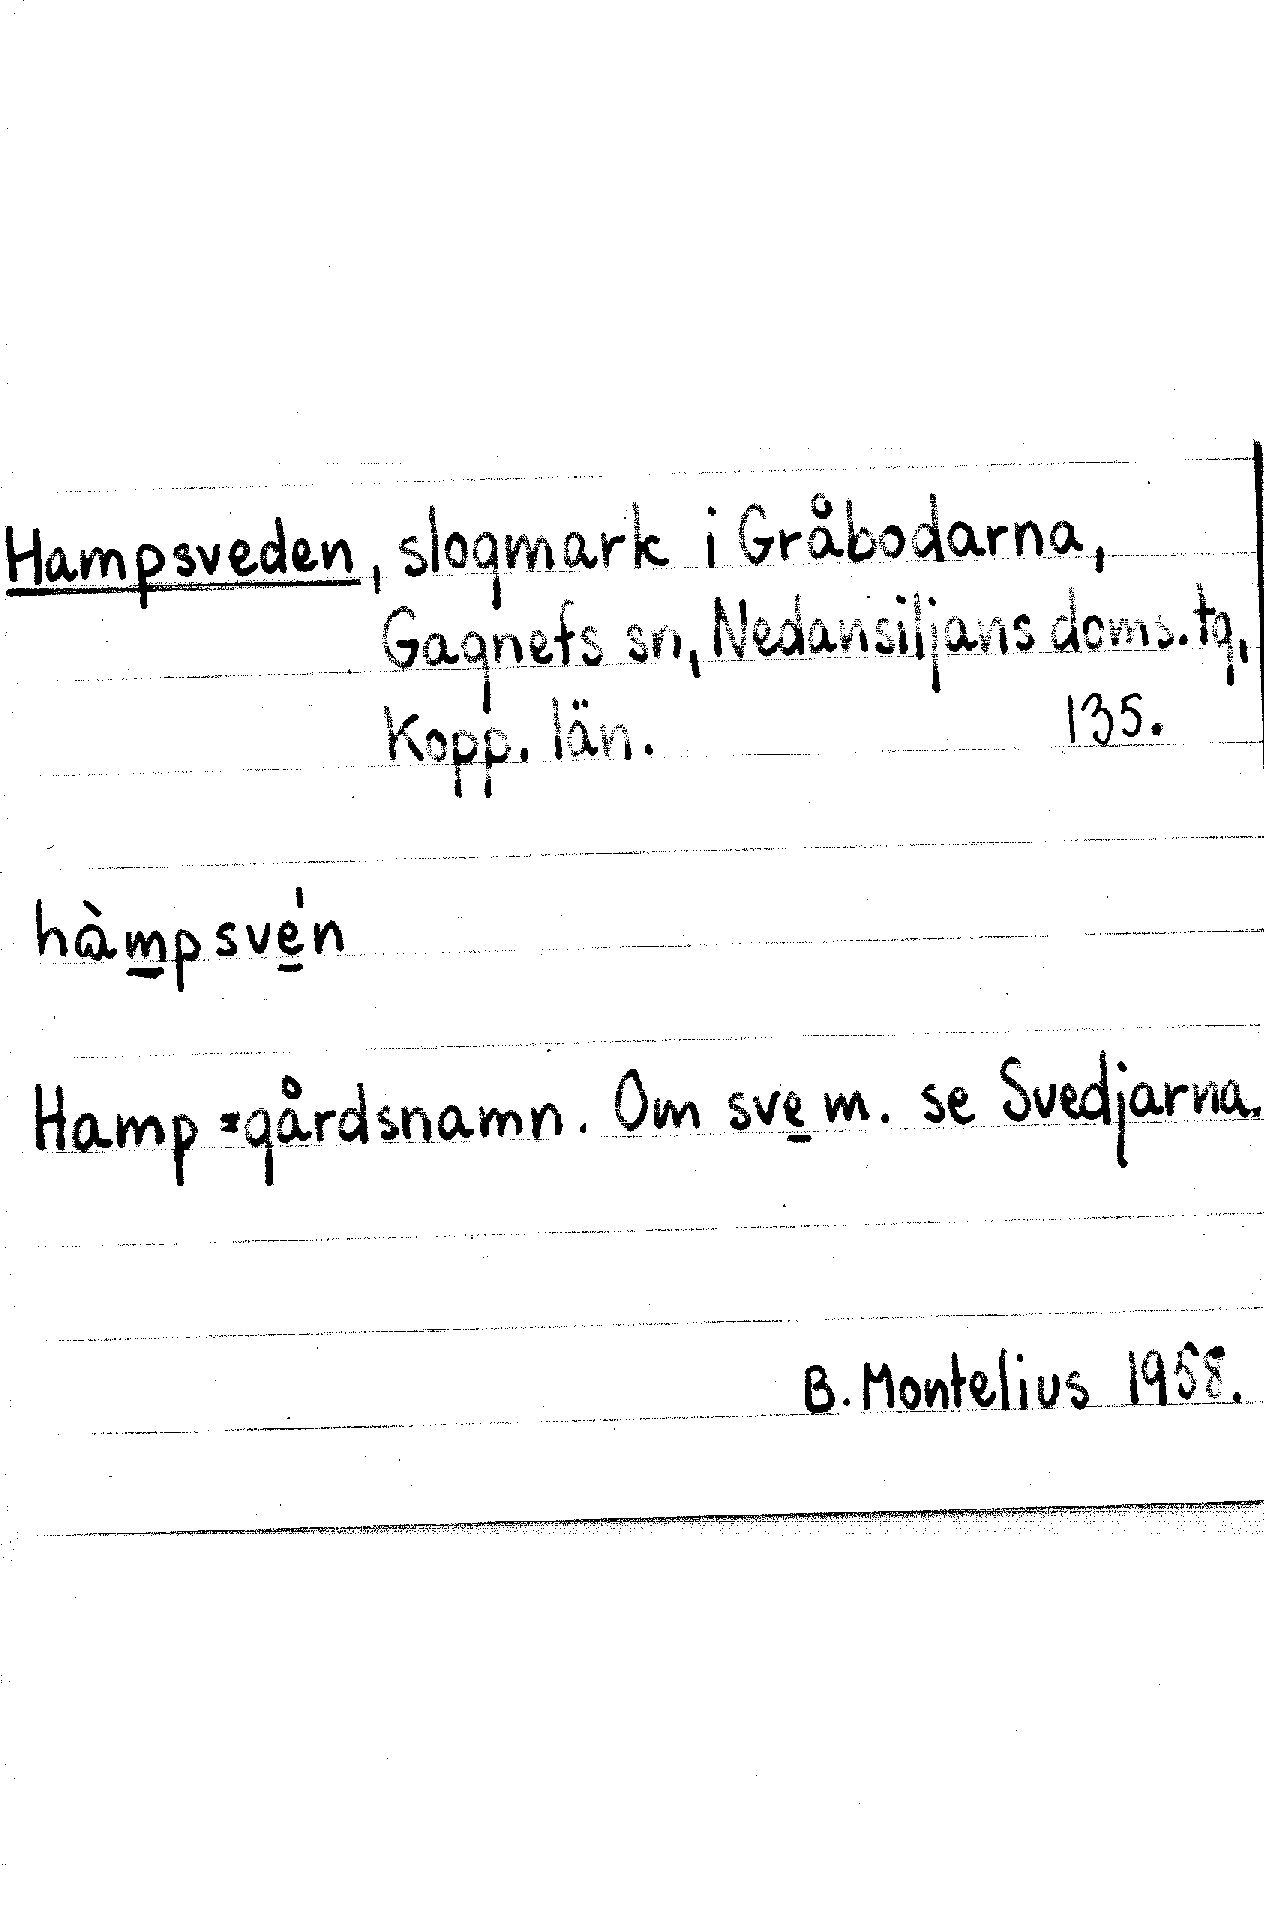 Hampsveden, slogmark i Gråbodarna,
Gagnefs sn, Nedansiljans doms. tg,
Kopp. län. 135.
hàmpsvén
Hamp = gårdsnamn. Om sve m. se Svedjarna.
B. Montelius 1958.